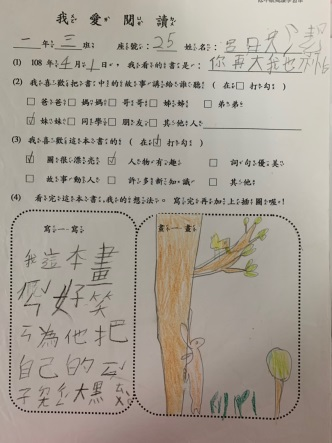 我愛閱讀
一年三班 座號：25 姓名：呂
(1) 108年4月1日，我看的是：你再大我也
(2) 我喜歡把書中的故事講給誰聽（在□打勾）
□爸爸 □媽媽 □哥哥 □姊姊 □弟弟
☑妹妹 □同學 □朋友 □其他人
(3) 我喜歡這本書的（在□打勾）
☑圖張漂亮 ☑人物有趣 □詞句優美
□故事動人 □許多新知識 □其他
(4) 看完這本書，我的想法。寫完再加上插圖喔！
寫一寫
我這本畫
好笑
ㄣ為他把
自己的
子 大黑
畫一畫